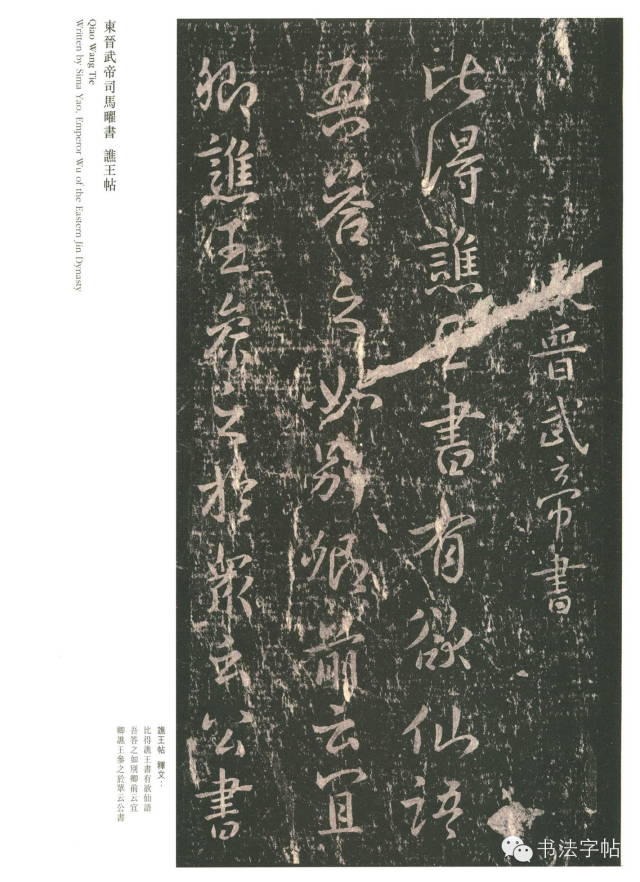 東晉武帝書
比得譙王書有欲仙語
吾答之如別卿前云宜
卿譙王參之於眾云公書
東晉武帝司馬曜書 譙王帖
Qiao Wang Tie
Written by Sima Yao, Emperor Wu of the Eastern Jin Dynasty
譙王帖 釋文：
比得譙王書有欲仙語
吾答之如別卿前云宜
卿譙王參之於眾云公書
书法字帖